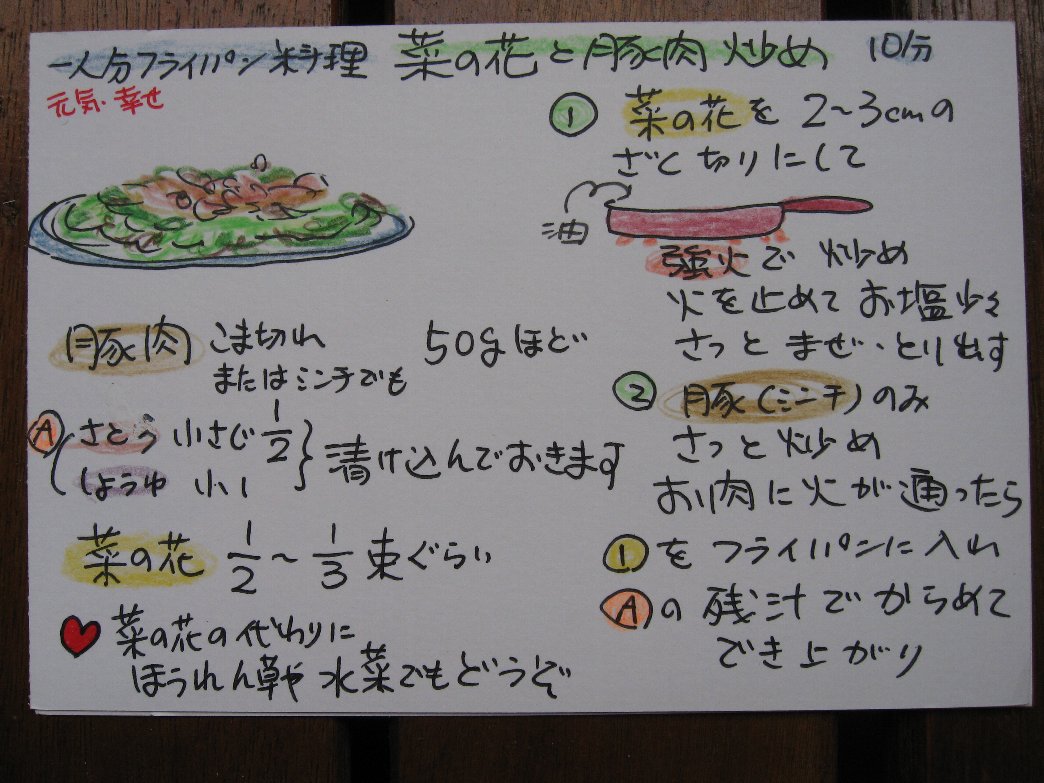 一人分フライパン料理 菜の花と豚肉炒め 10分
元気・幸せ
豚肉 こま切れ 50gほど
またはミンチでも
A さとう 小さじ1/2
しょうゆ 小1
漬け込んでおきます
菜の花 1/2～1/3束ぐらい
菜の花の代わりに
ほうれん草や 水菜でもどうぞ
① 菜の花を 2～3cmの
ざく切りにして
油
強火で 炒め
火を止めて お塩少々
さっと まぜ・とり出す
② 豚(ミンチ)のみ
さっと 炒め
お肉に火が通ったら
①を フライパンに入れ
Aの 残汁で からめて
でき上がり